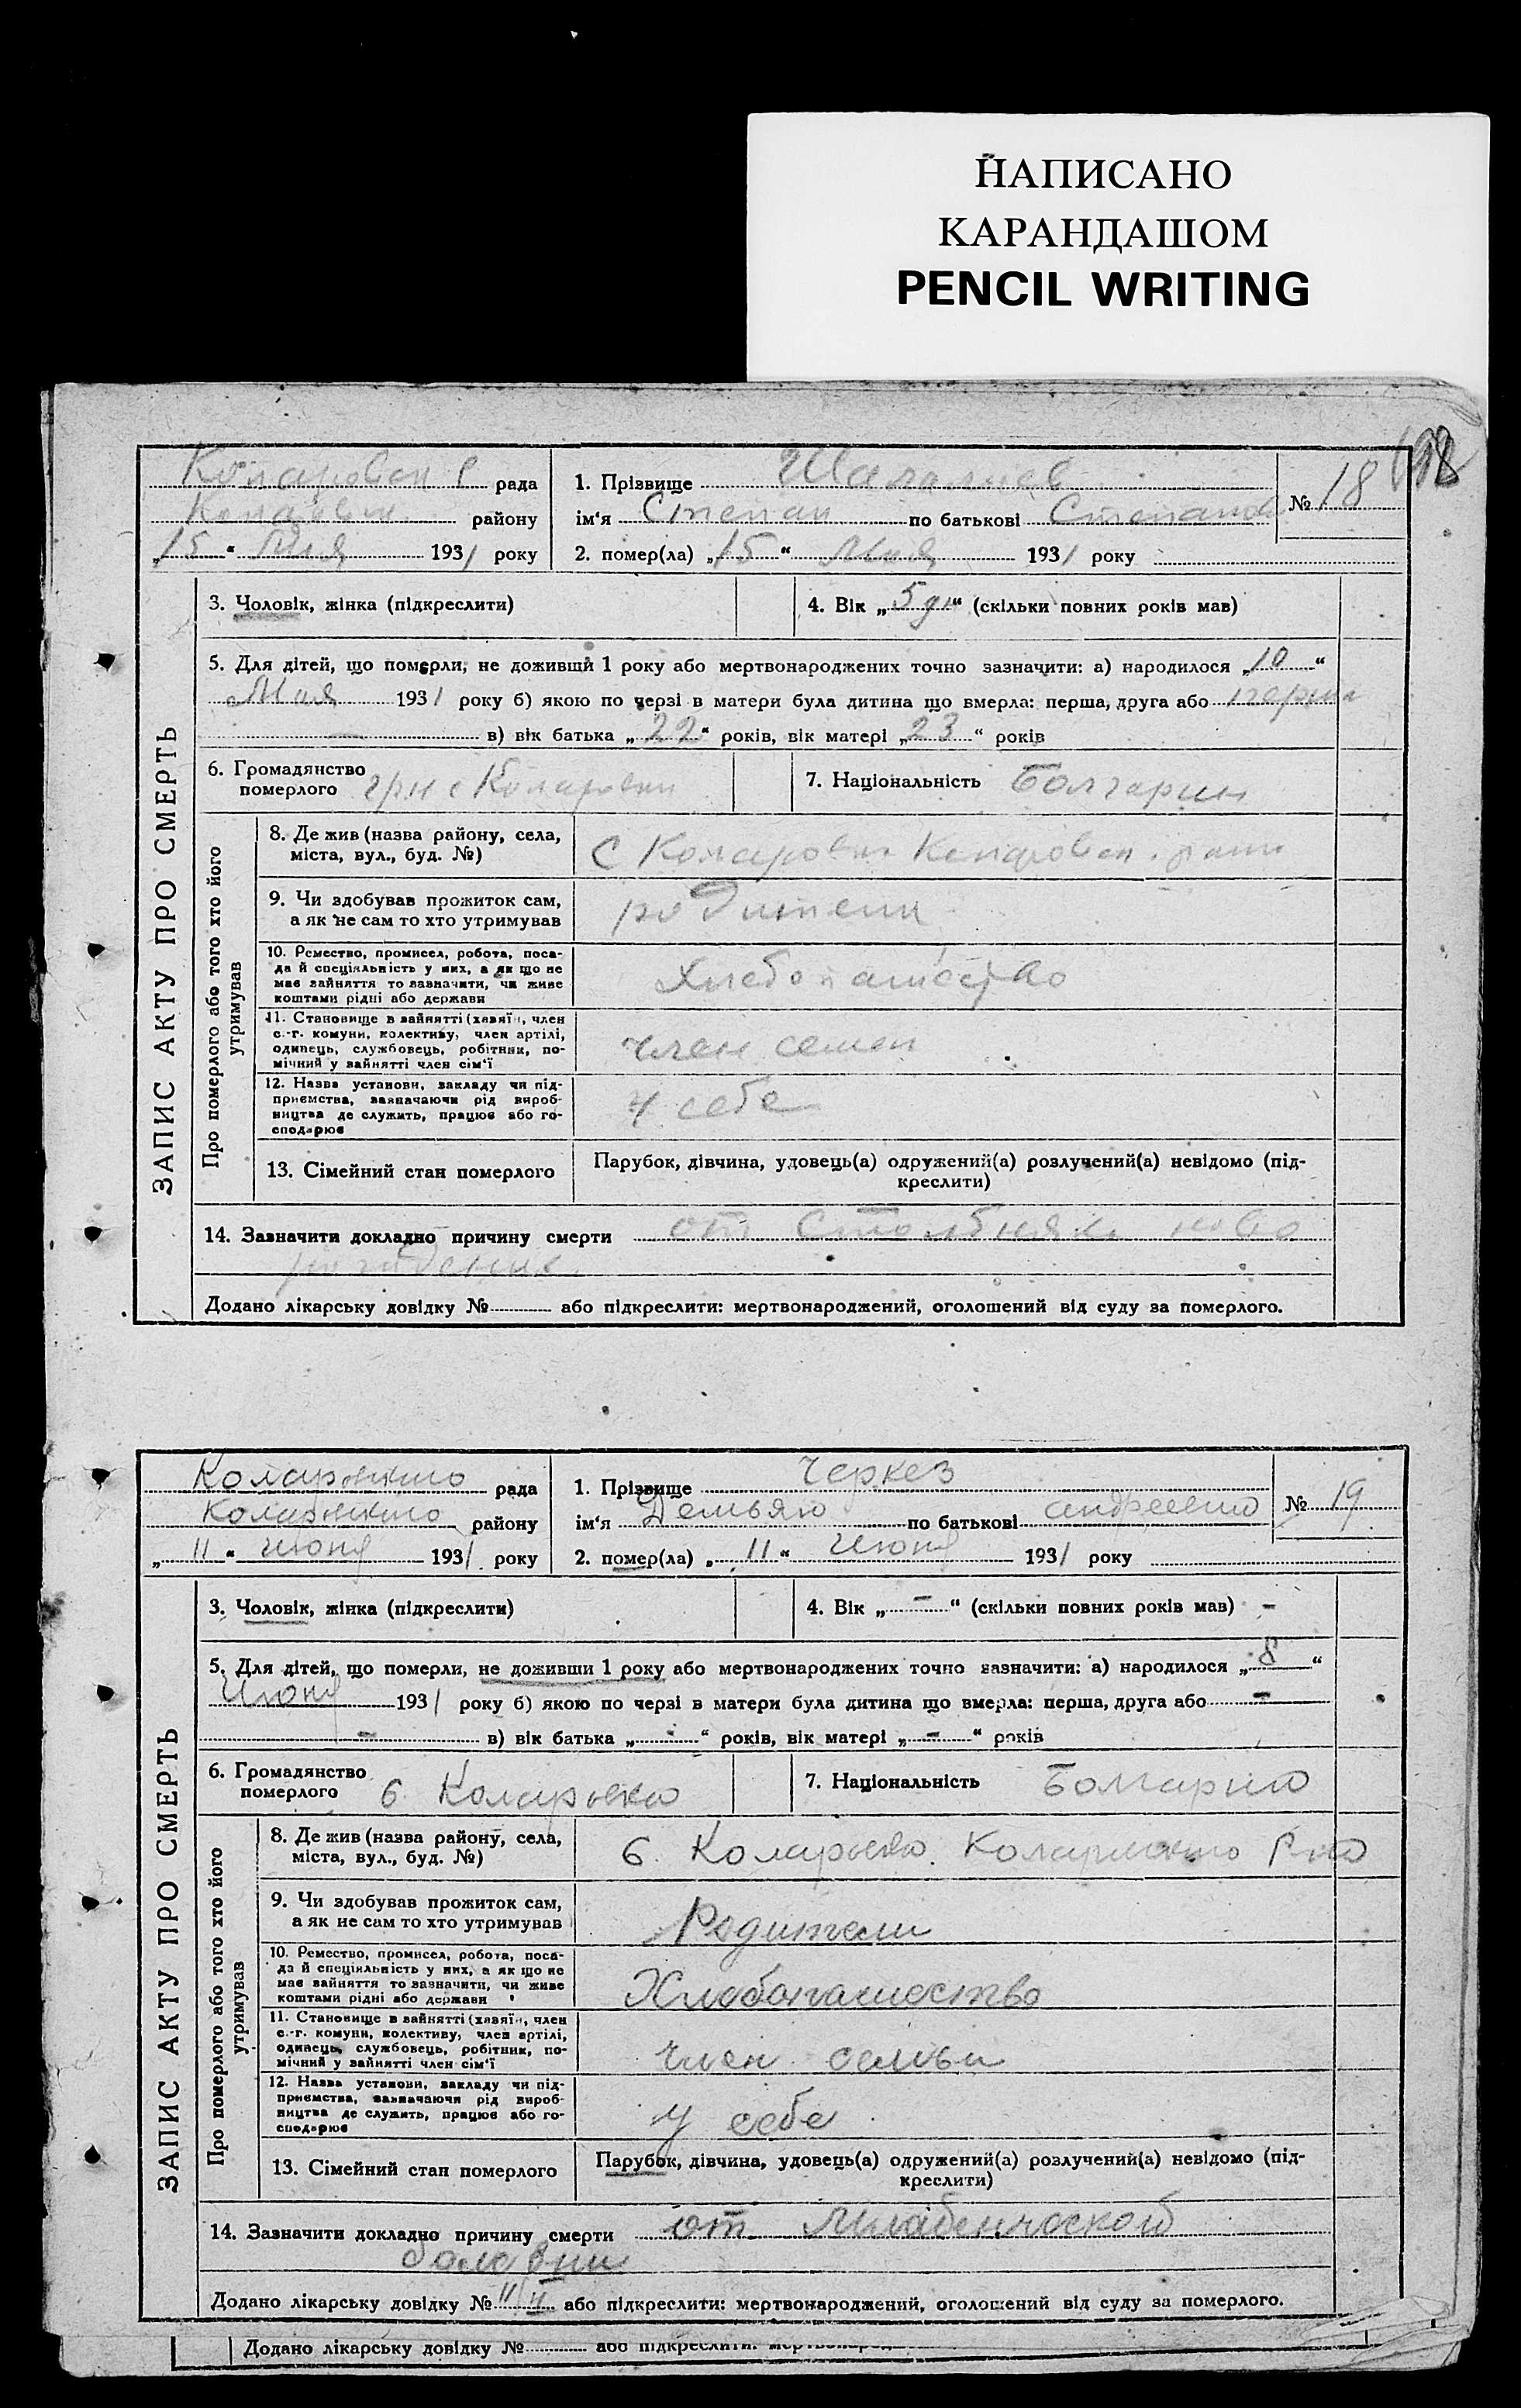 НАПИСАНО
КАРАНДАШОМ
PENCIL WRITING
ЗАПИС АКТУ ПРО СМЕРТЬ
рада
району
„15“ Мая 1931 року
1. Прізвище
№ 18
ім'я Степан по батькові Степанов
2. помер(ла) „15“ Мая 1931 року
3. Чоловік, жінка (підкреслити)
4. Вік „5 дн“ (скільки повних років мав)
5. Для дітей, що померли, не доживши 1 року або мертвонароджених точно зазначити: а) народилося „10“
Мая 1931 року б) якою по черзі в матери була дитина що вмерла: перша, друга або
— в) вік батька „22“ років, вік матері „23“ років
6. Громадянство
померлого
7. Національність Болгарин
Про померлого або того хто його
утримував
8. Де жив (назва району, села,
міста, вул., буд. №)
9. Чи здобував прожиток сам,
а як не сам то хто утримував
родители
10. Ремество, промисел, робота, поса-
да й спеціяльність у них, а як що не
має зайняття то зазначити, чи живе
коштами рідні або держави
Хлебопашество
11. Становище в зайнятті (хазяїн, член
с.-г. комуни, колективу, член артілі,
одинець, службовець, робітник, по-
мічний у зайнятті член сім'ї
член семьи
12. Назва установи, закладу чи під-
приємства, зазначаючи рід вироб-
ництва де служить, працює або го-
сподарює
У себе
13. Сімейний стан померлого
Парубок, дівчина, удовець(а) одружений(а) розлучений(а) невідомо (під-
креслити)
14. Зазначити докладно причину смерти от Столбняка ново
рождених
Додано лікарську довідку № або підкреслити: мертвонароджений, оголошений від суду за померлого.
ЗАПИС АКТУ ПРО СМЕРТЬ
рада
району
„11“ Июня 1931 року
1. Прізвище Черкез
№ 19
ім'я Демьян по батькові андреевич
2. помер(ла) „11“ Июня 1931 року
3. Чоловік, жінка (підкреслити)
4. Вік „-“ (скільки повних років мав) -
5. Для дітей, що померли, не доживши 1 року або мертвонароджених точно зазначити: а) народилося „8“
Июня 1931 року б) якою по черзі в матери була дитина що вмерла: перша, друга або -
- в) вік батька „-“ років, вік матері „-“ років
6. Громадянство
померлого
с. Коларовка
7. Національність
Про померлого або того хто його
утримував
8. Де жив (назва району, села,
міста, вул., буд. №)
с. Коларовка
9. Чи здобував прожиток сам,
а як не сам то хто утримував
Родители
10. Ремество, промисел, робота, поса-
да й спеціяльність у них, а як що не
має зайняття то зазначити, чи живе
коштами рідні або держави
Хлебопашество
11. Становище в зайнятті (хазяїн, член
с.-г. комуни, колективу, член артілі,
одинець, службовець, робітник, по-
мічний у зайнятті член сім'ї
член семьи
12. Назва установи, закладу чи під-
приємства, зазначаючи рід вироб-
ництва де служить, працює або го-
сподарює
У себе
13. Сімейний стан померлого
Парубок, дівчина, удовець(а) одружений(а) розлучений(а) невідомо (під-
креслити)
14. Зазначити докладно причину смерти от Младенческой
болезни
Додано лікарську довідку № або підкреслити: мертвонароджений, оголошений від суду за померлого.
Додано лікарську довідку № або підкреслити: